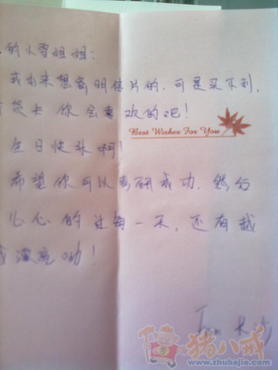 的小雪姐姐:
我本来想寄明信片的,可是买不到,
贺卡你会喜欢的吧!
Best Wishes For You
生日快乐啊!
希望你可以考研成功,然后
心的过每一天,还有越
漂亮呦!
猪八戒
www.zhubajie.com